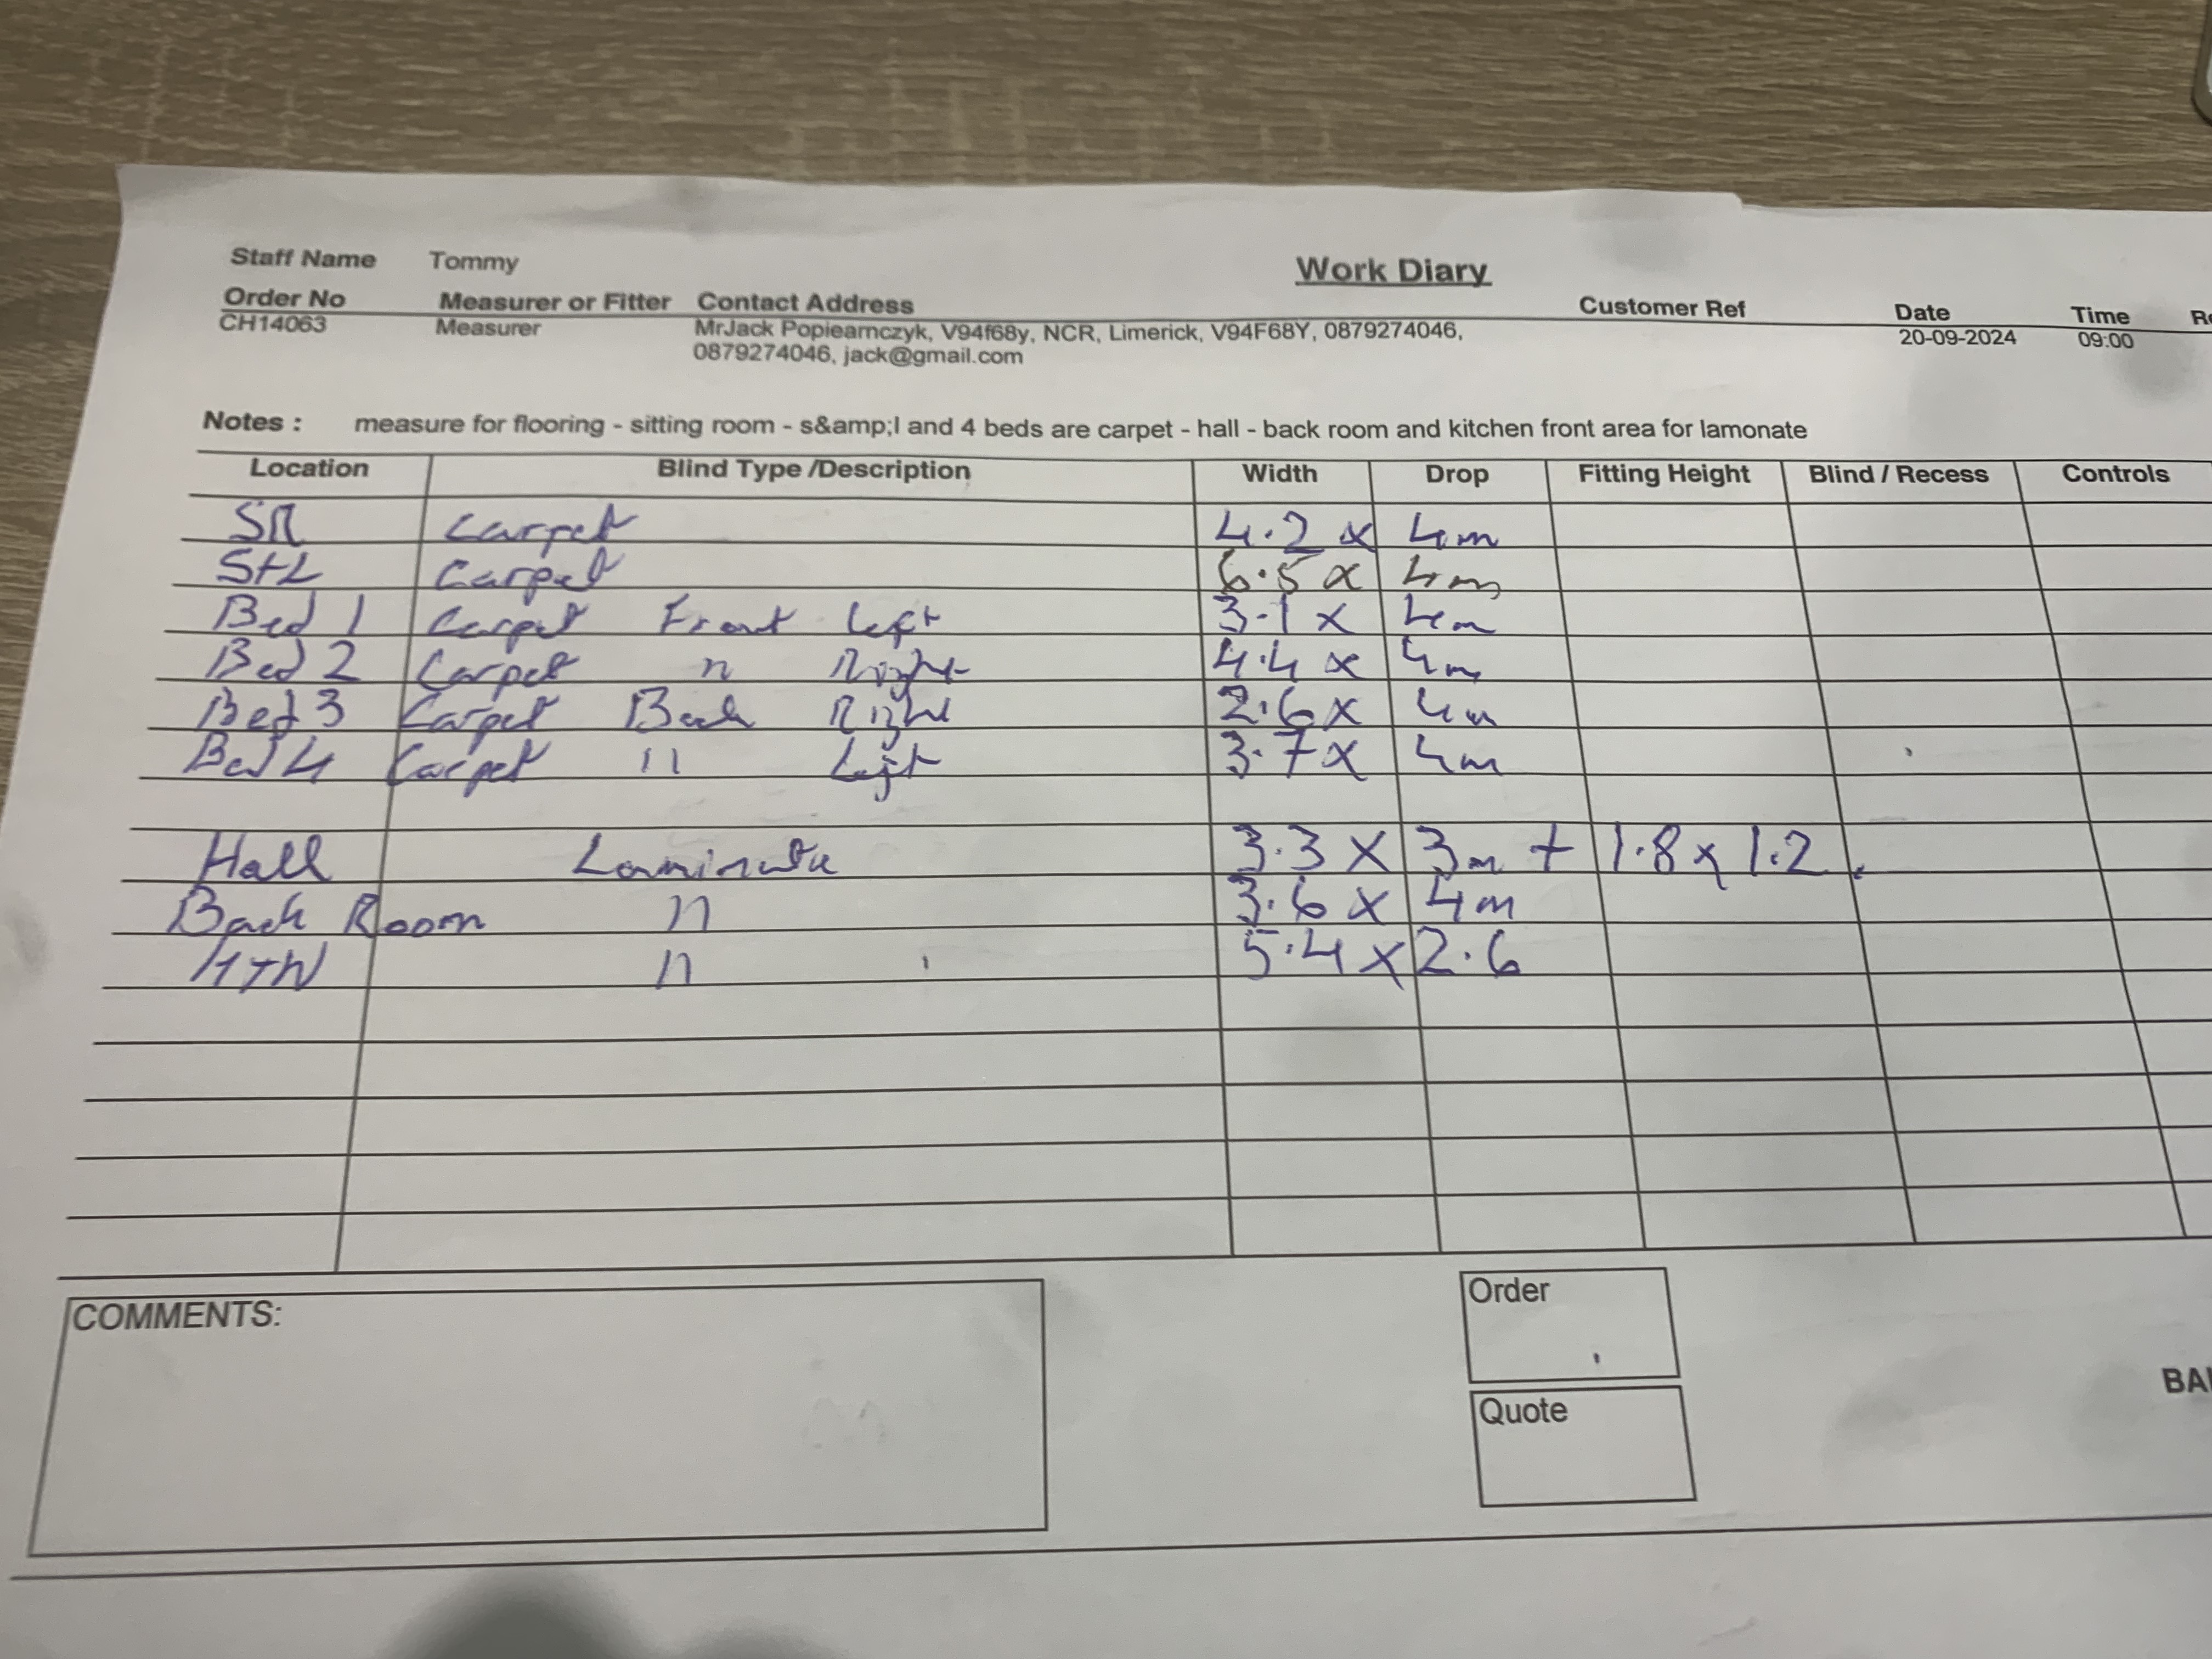 Work Diary
Staff Name Tommy
Order No Measurer or Fitter Contact Address Customer Ref Date Time Re
CH14063 Measurer MrJack Popiearnczyk, V94f68y, NCR, Limerick, V94F68Y, 0879274046, 20-09-2024 09:00
0879274046, jack@gmail.com
Notes : measure for flooring - sitting room - s&amp;l and 4 beds are carpet - hall - back room and kitchen front area for lamonate
Location Blind Type /Description Width Drop Fitting Height Blind / Recess Controls
SR Carpet 4.2 x 4m
S+L Carpet 6.5 x 4m
Bed 1 Carpet Front left 3.1 x 4m
Bed 2 Carpet " Right 4.4 x 4m
Bed 3 Carpet Back Right 2.6 x 4m
Bed 4 Carpet " Left 3.7 x 4m
Hall Laminate 3.3 x 3m + 1.8 x 1.2
Back Room " 3.6 x 4m
" 5.4 x 2.6
COMMENTS:
Order
Quote
BAL